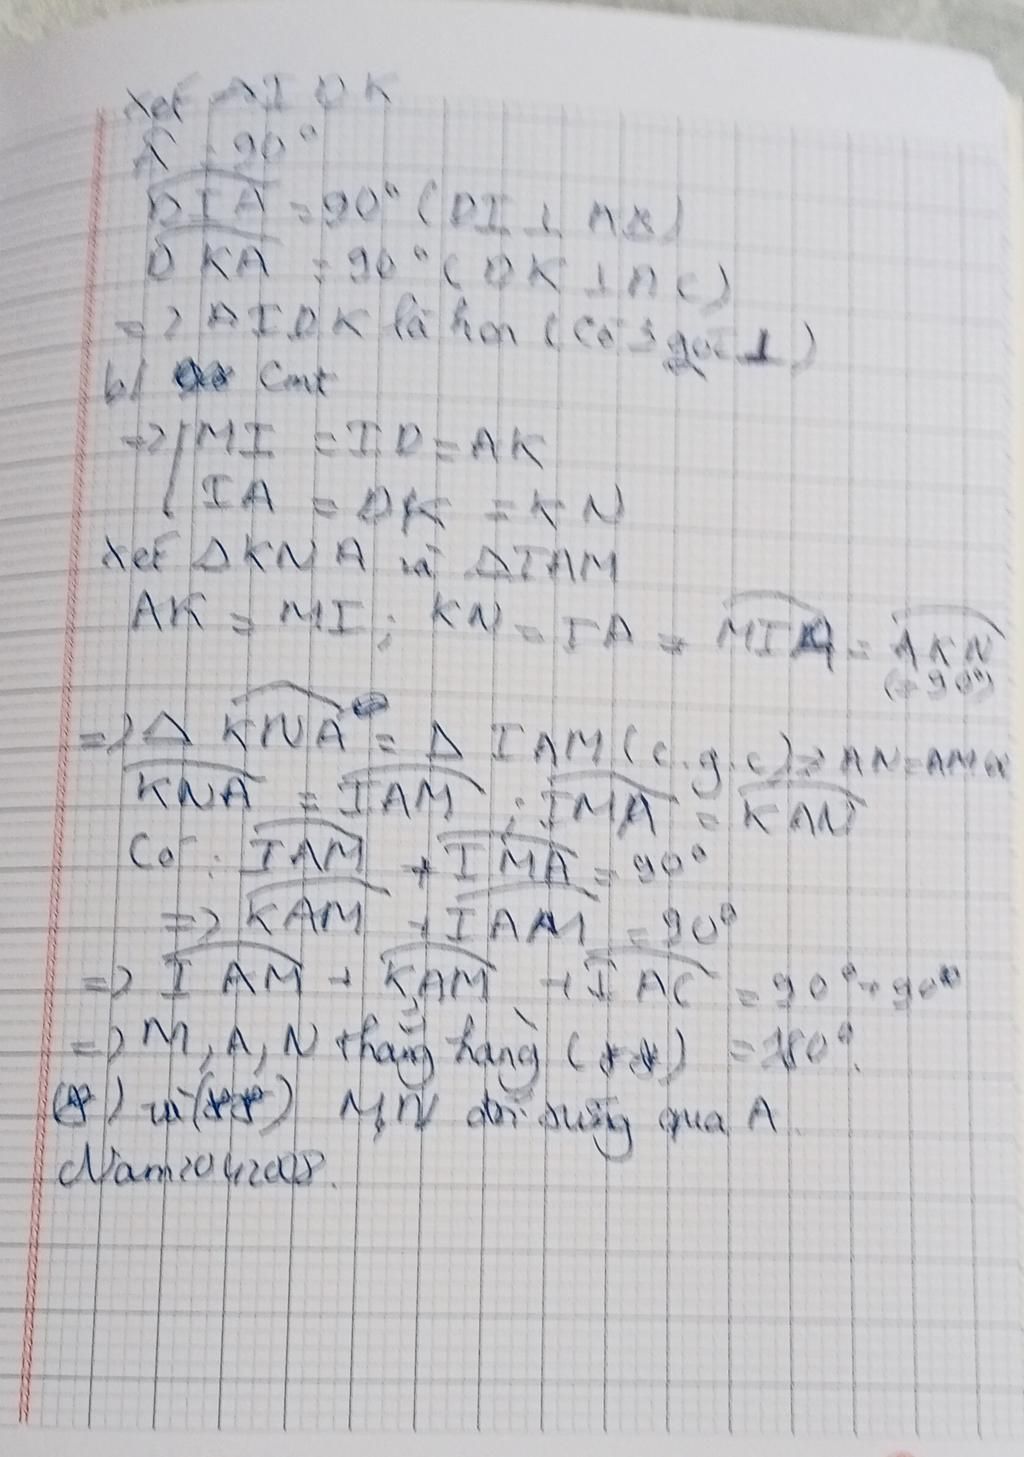 Xét AIDK
Â = 90°
DIA = 90° (DI ⊥ AB)
DKA = 90° (DK ⊥ AC)
=> AIDK là hcn (có 3 góc ⊥)
b/ Cmt
=> { MI = ID = AK
IA = DK = KN
Xét ΔKNA và ΔIAM
AK = MI; KN = IA = MIA = AKN
(=90°)
=> Δ KNA = Δ IAM (c.g.c) => AN=AM
KNA = IAM ; IMA = KAN
Có: IAM + IMA = 90°
=> KAM + IAM = 90°
=> IAM + KAM + IAC = 90° + 90°
=> M, A, N thẳng hàng (**) = 180°.
(*) và (**) M, N đối xứng qua A.
Nam2042008.